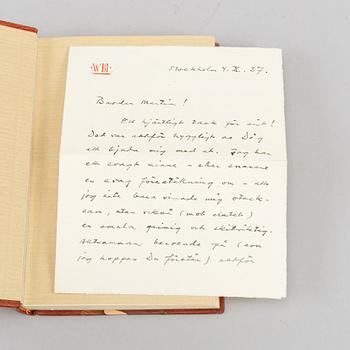 WBT
Stockholm 4.X.37.
Broder Martin!
Ett hjärtligt tack för sist!
Det var väldigt hyggligt av Dig
att bjuda mig med ut. Jag har
ett svagt minne – eller snarare
en svag föreställning om – att
jag inte bara visade mig otack-
sam, utan också (
en smula grinig och
beroende på (som
jag hoppas Du förstår)